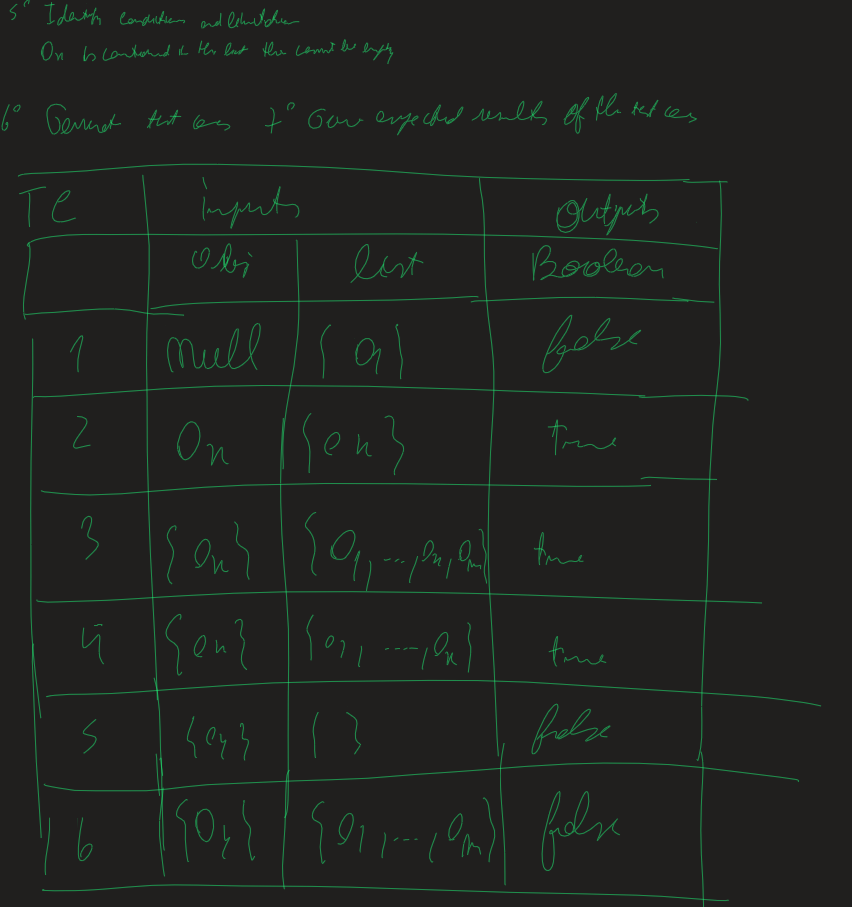 5° Identify conditions and limitations
On is contained in the list the cannot be empty
6° Generate test cases 7° Give expected results of the test cases
TC inputs Outputs
Obj list Boolean
1 Null { O1 } false
2 On { On } true
3 { On } { O1, ..., On, Om } true
4 { On } { O1, ..., On } true
5 { Oy } { } false
6 { Oy } { O1, ..., Om } false